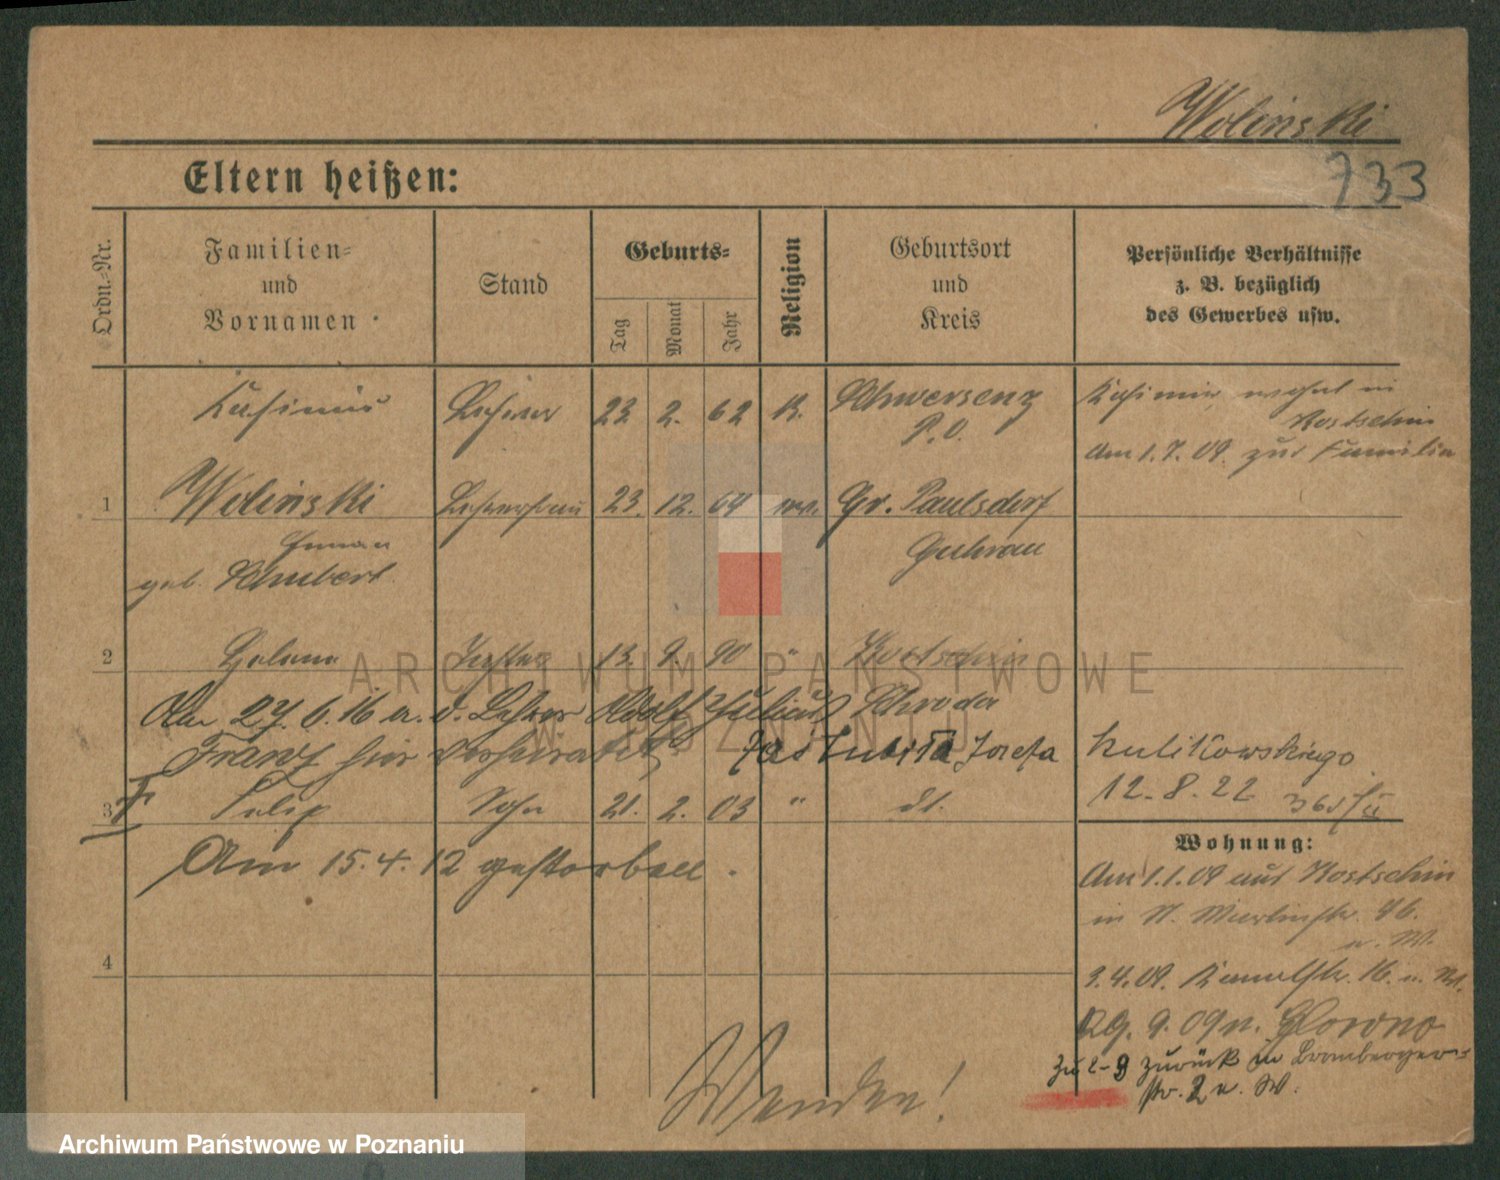 Wolinski
733
Eltern heißen:
Ordn.-Nr.
Familien-
und
Vornamen
Stand
Geburts-
Tag
Monat
Jahr
Religion
Geburtsort
und
Kreis
Persönliche Verhältnisse
z. B. bezüglich
des Gewerbes usw.
Kasimir Lehrer 23 2. 62 K. Schwersenz
P. O.
Kasimir, wohnt in
Kostschin
Am 1.7.09 zur Familie
1 Wolinski Lehrerfrau 23. 12. 64 Gr. Paulsdorf
geb. Schubert Guhrau
2 Helene Tochter 13. 9. 90 " Kostschin
Am 27. 6. 16 a. d. Lehrer Adolf Julius Schroda
Franz hier verheiratet Josefa
Kulikowskiego
12.8.22
3 Sohn 21. 2. 03 " dt.
Am 15.4.12 gestorben.
4
Wohnung:
Am 1.1.09 aus Kostschin
in St. Martinstr.
3.4.09. 16. u. W.
29. 9. 09 n.
2-9 zurück in Bromberger-
str. 2 u. W.
Wenden!
ARCHIWUM PAŃSTWOWE
W POZNANIU
Archiwum Państwowe w Poznaniu